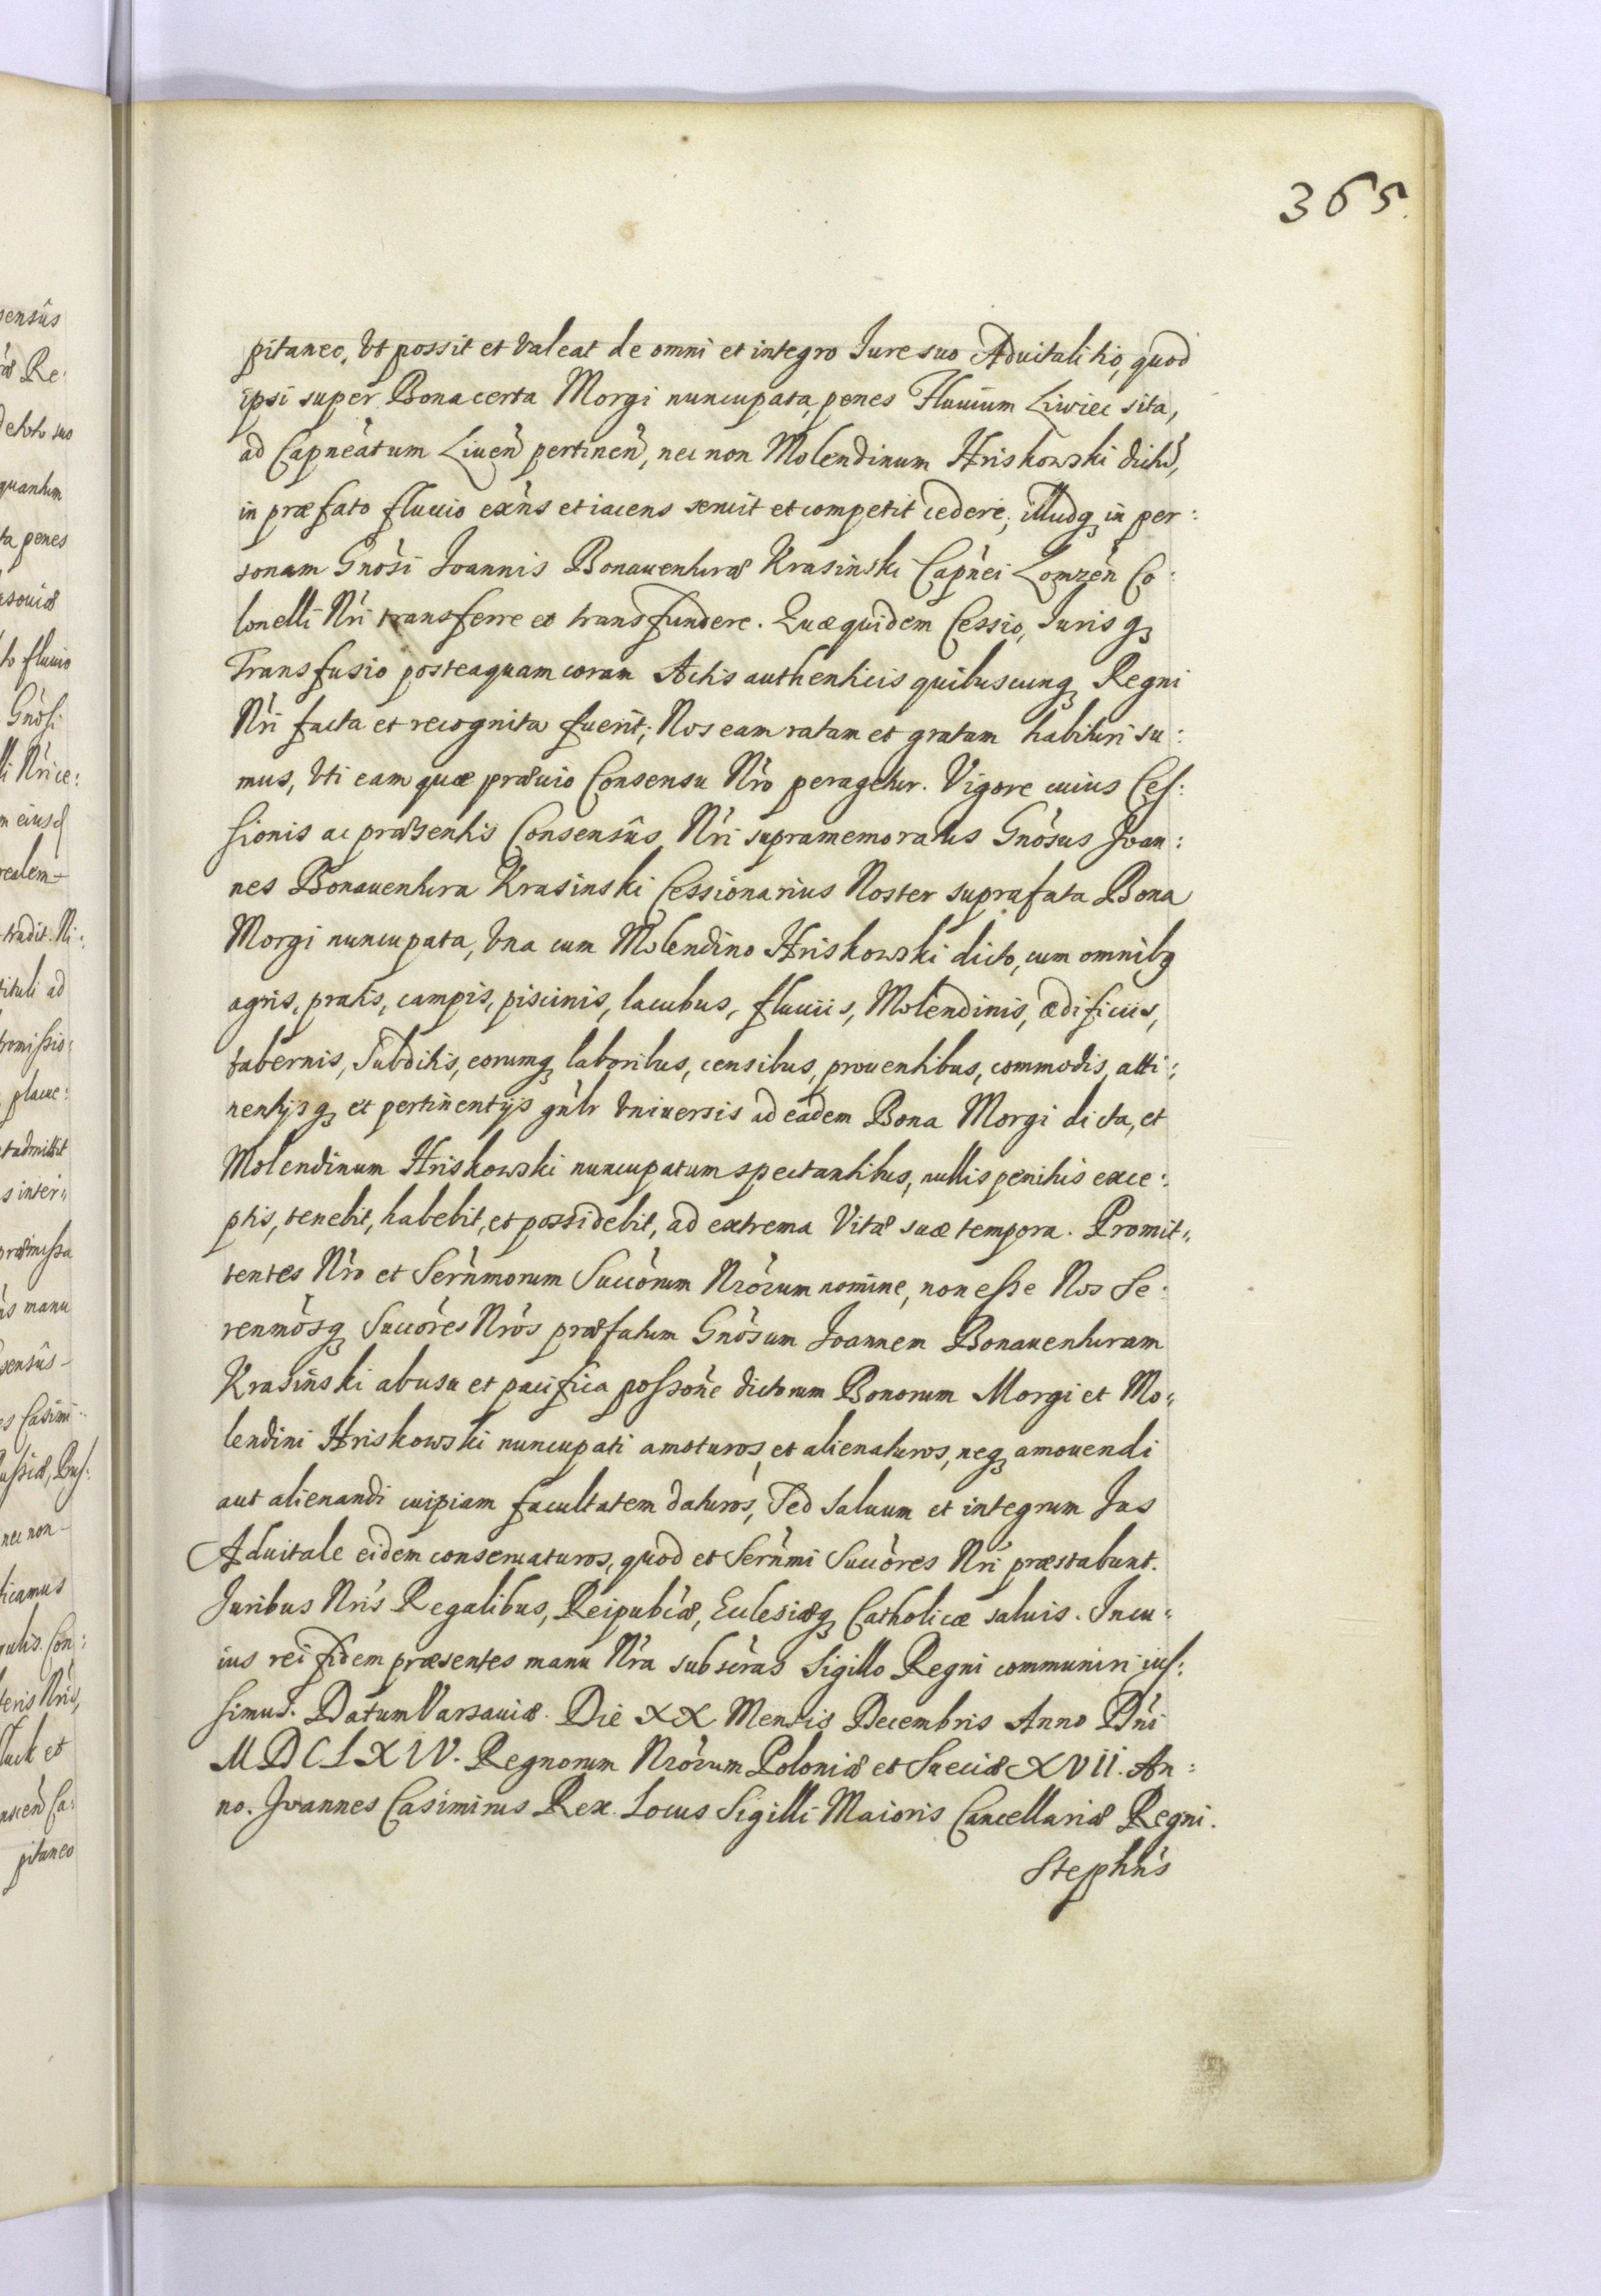 365.
pitaneo, Vt possit et valeat de omni et integro Iure suo Aduitalitio, quod
ipsi super Bona certa Morgi nuncupata, penes Fluuium Liwiec sita,
ad Capneatum Liuen pertinen, nec non Molendinum Hriskowski dictu,
in præfato fluuio exns et iacens seruit et competit cedere, illudq in per:
sonam Gnosi Ioannis Bonauenturæ Krasinski Capnei Lomzen Co:
lonelli Nri transferre et transfundere. Quæ quidem Cessio, Iuris q
Transfusio posteaquam coram Actis authenticis quibuscunq Regni
Nri facta et recognita fuerit; Nos eam ratam et gratam habituri su:
mus, Vti eam quæ præuio Consensu Nro peragetur. Vigore cuius Ces:
sionis ac præsentis Consensûs Nri supramemoratus Gnosus Joan:
nes Bonauentura Krasinski Cessionarius Noster suprafata Bona
Morgi nuncupata, Vna cum Molendino Hriskowski dicto, cum omnibq
agris, pratis, campis, piscinis, lacubus, fluuiis, Molendinis, ædificiis,
tabernis, Subditis, eorumq laboribus, censibus, prouentibus, commodis, atti:
nentijsq et pertinentijs gnlr Vniuersis ad eadem Bona Morgi dicta, et
Molendinum Hriskowski nuncupatum spectantibus, nullis penitus exce:
ptis, tenebit, habebit, et possidebit, ad extrema Vitæ suæ tempora. Promit:
tentes Nro et Sernmorum Succorum Nrorum nomine, non esse Nos Se:
renmosq Succores Nros præfatum Gnosum Joannem Bonauenturam
Krasinski ab usu et pacifica possone dictorum Bonorum Morgi et Mo:
lendini Hriskowski nuncupati amoturos, et alienaturos, neq amouendi
aut alienandi cuipiam facultatem daturos, Sed Saluum et integrum Jus
Aduitale eidem conseruaturos, quod et Sernmi Succores Nri præstabunt.
Juribus Nris Regalibus, Reipubcæ, Ecclesiæq Catholicæ saluis. In cu:
ius rei fidem præsentes manu Nra subscras Sigillo Regni communiri ius:
simus. Datum Varsauiæ. Die XX Mensis Decembris Anno Dni
MDCLXIV. Regnorum Nrorum Poloniæ et Sueciæ XVII. An:
no. Joannes Casimirus Rex. Locus Sigilli Maioris Cancellariæ Regni.
Stephns